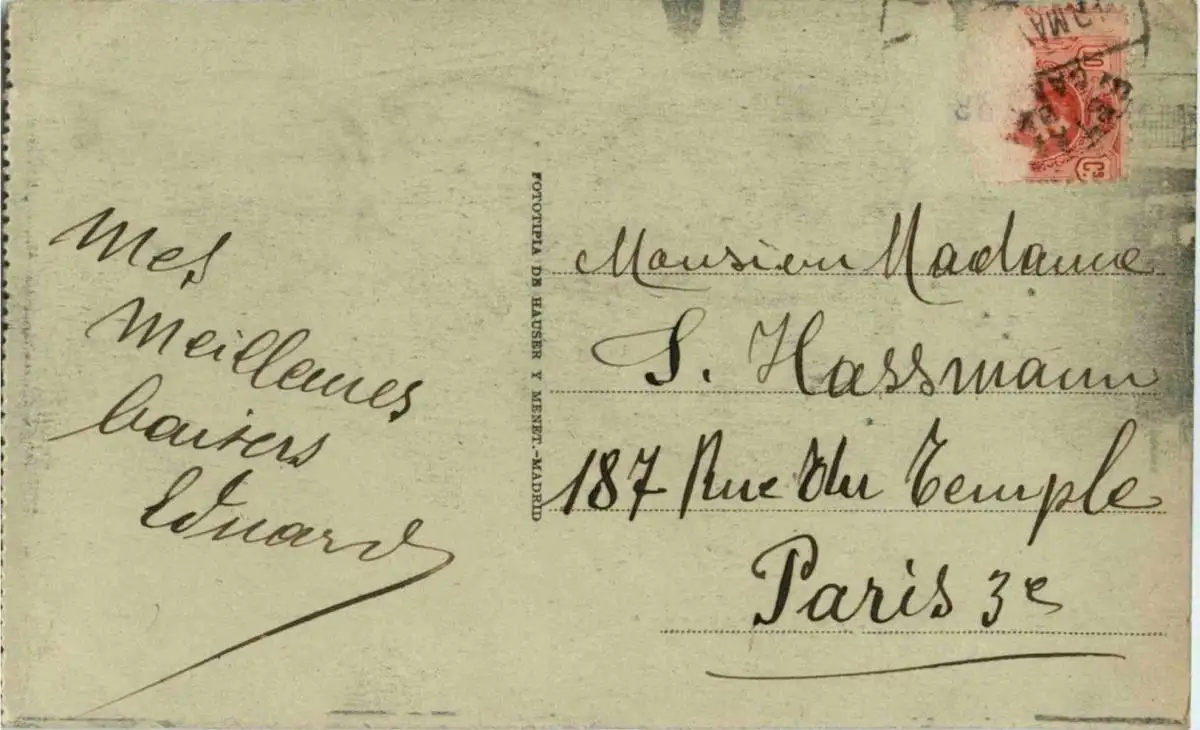 Mes
Meilleures
baisers
Eduard
FOTOTIPIA DE HAUSER Y MENET.-MADRID
Monsieur Madame
S. Hassmann
187 Rue du Temple
Paris 3e
10 Cs